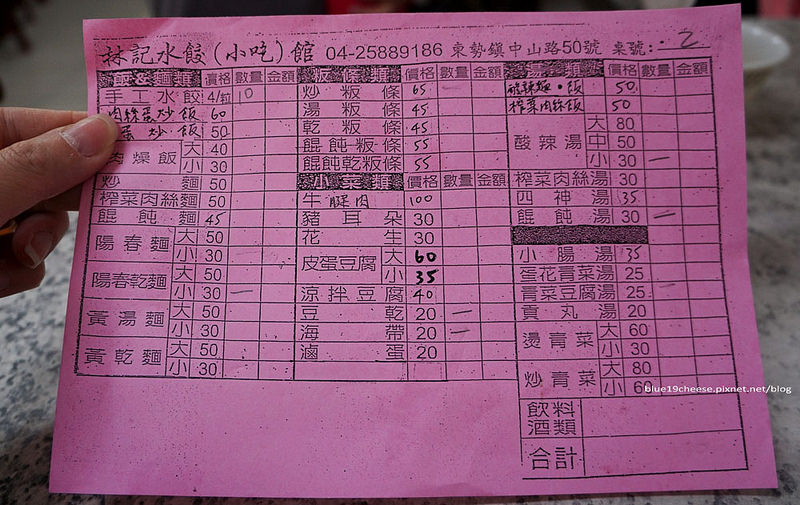 林記水餃(小吃)館 04-25889186 東勢鎮中山路50號 桌號: 2
飯&麵類 價格 數量 金額
手工水餃 4/粒 10
肉絲蛋炒飯 60
蛋炒飯 50
肉燥飯 大 40
小 30
炒麵 50
榨菜肉絲麵 50
餛飩麵 45
陽春麵 大 50
小 30
陽春乾麵 大 50
小 30 一
黃湯麵 大 50
小 30
黃乾麵 大 50
小 30
粄條類 價格 數量 金額
炒粄條 65 一
湯粄條 45
乾粄條 45
餛飩粄條 55
餛飩乾粄條 55
小菜類 價格 數量 金額
牛腱肉 100
豬耳朵 30
花生 30
皮蛋豆腐 大 60
小 35
涼拌豆腐 40
豆乾 20 一
海帶 20 一
滷蛋 20
價格 數量 金額
酸辣麵・飯 50
榨菜肉絲飯 50
酸辣湯 大 80
中 50
小 30 一
榨菜肉絲湯 30
四神湯 35
餛飩湯 30 一
小腸湯 35
蛋花青菜湯 25
青菜豆腐湯 25
貢丸湯 20
燙青菜 大 60
小 30
炒青菜 大 80
小 60
飲料
酒類
合計
blue19cheese.pixnet.net/blog